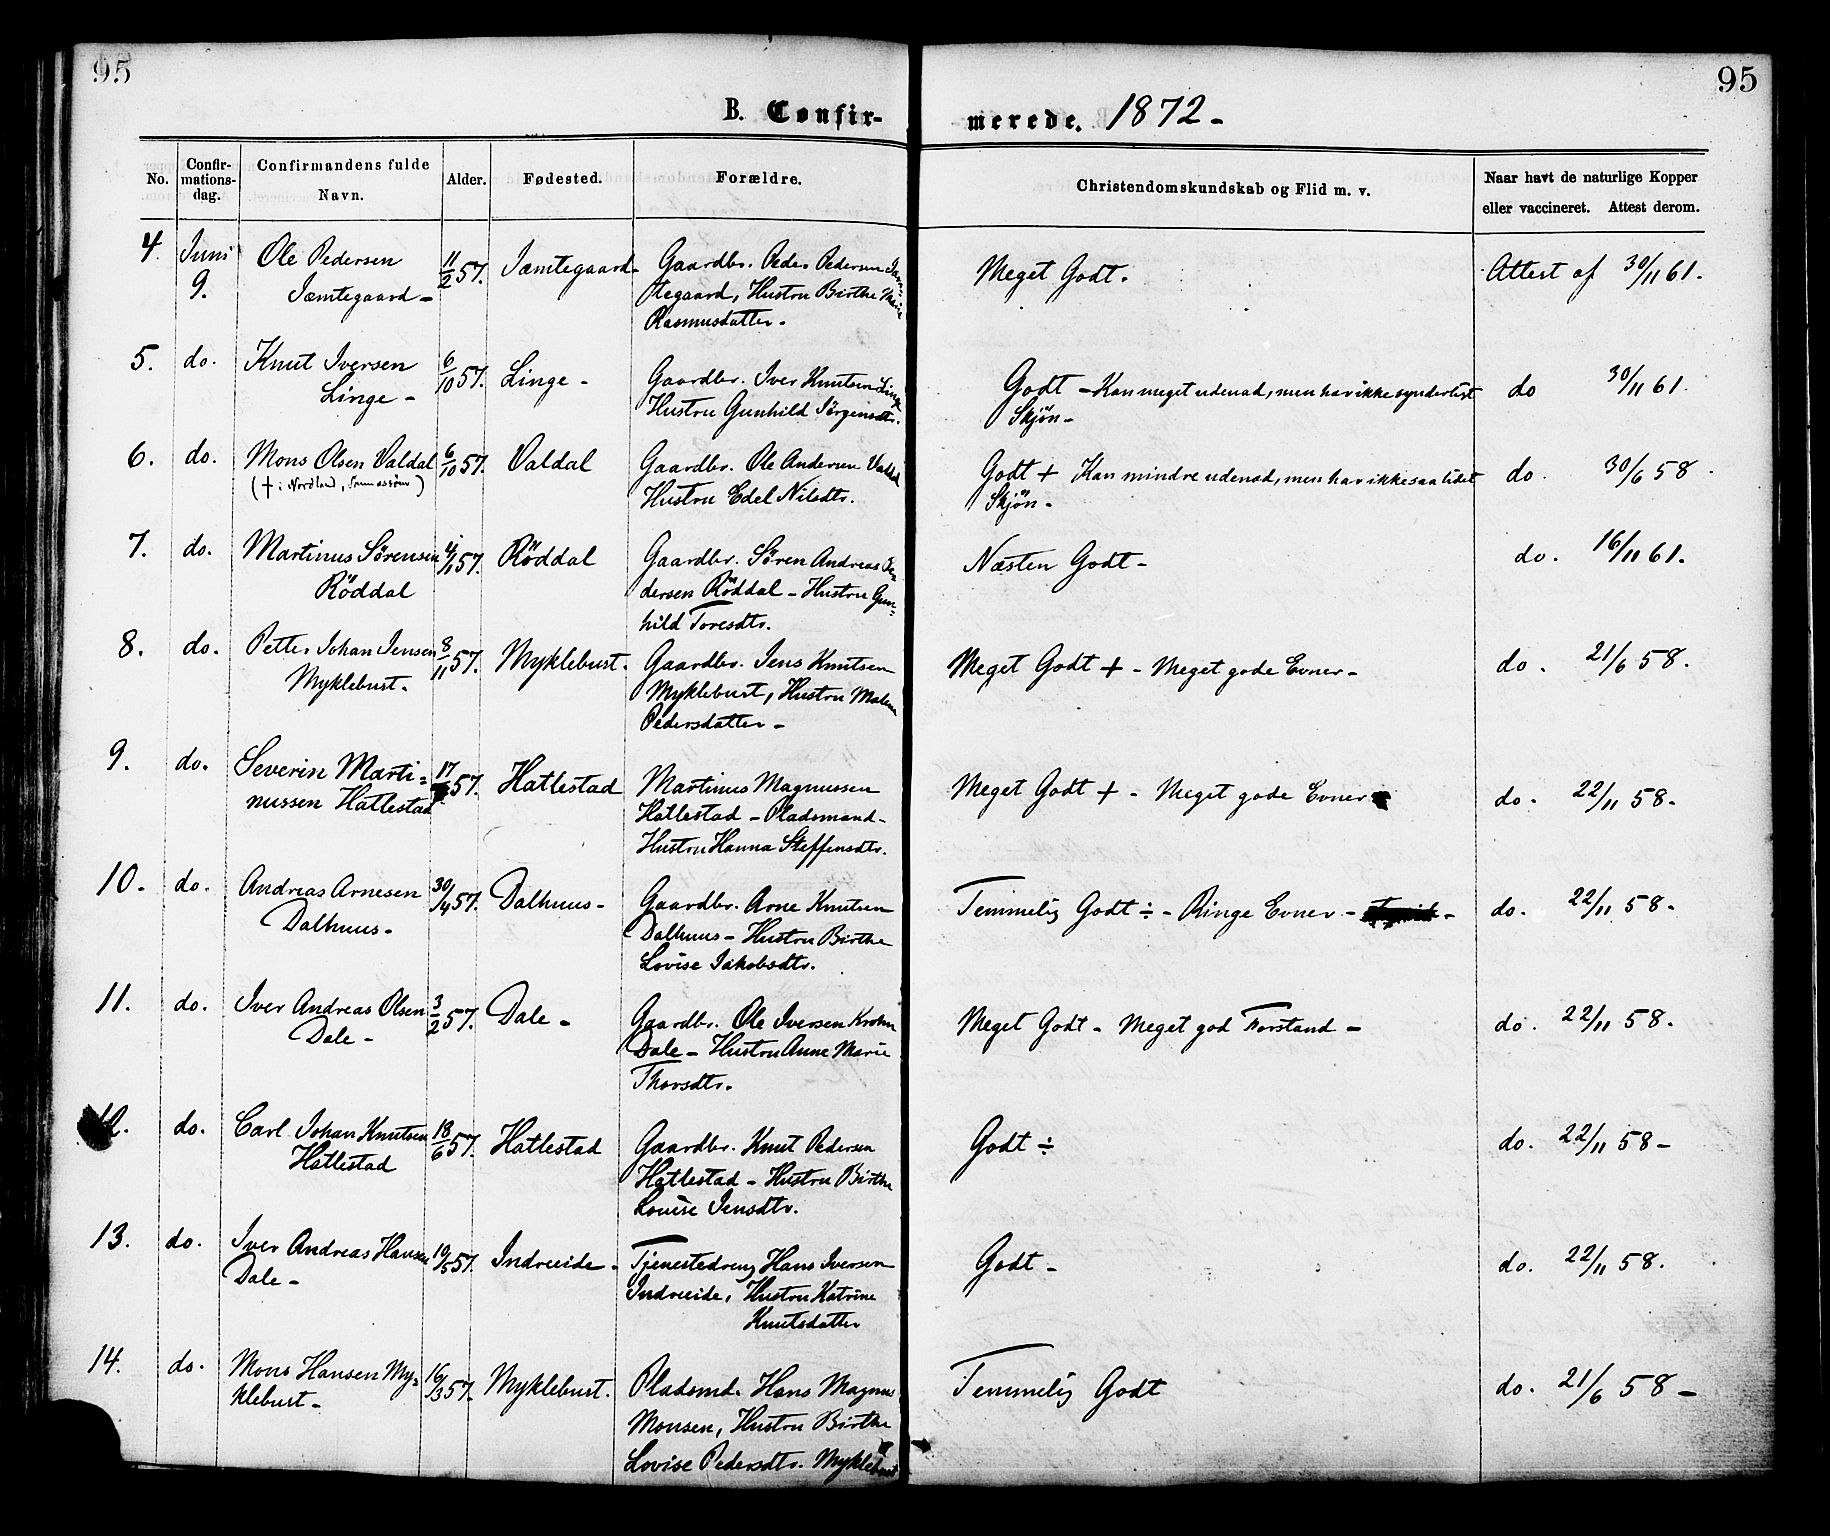 95
95
B. Confir-
merede. 1872-
No.
Confir-
mations-
dag.
Confirmandens fulde
Navn.
Alder.
Fødested.
Forældre.
Christendomskundskab og Flid m. v.
Naar havt de naturlige Kopper
eller vaccineret. Attest derom.
4. Juni Ole Pedersen 11/2 57. Jæmtegaard- Gaardbr. Peder Pedersen Jæm- Meget Godt. Attest af 30/11 61.
9. Jæmtegaard- tegaard, Hustru Birthe Marie
Rasmusdatter-
5. do. Knut Iversen 6/10 57. Linge- Gaardbr. Iver Knutsen Linge Godt - Kan meget udenad, men har ikke synderligt do 30/11 61.
Linge- Hustru Gunhild Jörgensdtr. Skjön-
6. do. Mons Olsen Valdal 6/10 57. Valdal Gaardbr. Ole Andersen Valdal Godt + Kan mindre udenad, men har ikke saa lidet do. 30/6 58
(† i Nordland, ) Hustru Edel Nilsdtr. Skjön-
7. do. Martinus Sörensen 4/11 57. Röddal Gaardbr. Sören Andreas Pe- Næsten Godt- do. 16/11 61.
Röddal dersen Röddal - Hustru Gun-
hild Toresdtr.
8. do. Petter Johan Jensen 8/11 57. Myklebust. Gaardbr. Jens Knutsen Meget Godt + - Meget gode Evner- do. 21/6 58.
Myklebust. Myklebust, Hustru Malene
Pedersdatter-
9. do. Severin Marti- 17/ 57. Hatlestad Martinus Magnussen Meget Godt + - Meget gode Evner do. 22/11 58-
nussen Hatlestad Hatlestad - Pladsmand-
Hustru Hanna Steffensdtr.
10. do. Andreas Arnesen 30/4 57. Dalhuus- Gaardbr. Arne Knutsen Temmelig Godt ÷ - Ringe Evner - do. 22/11 58-
Dalhuus- Dalhuus - Hustru Birthe
Lovise Jakobsdtr.
11. do. Iver Andreas Olsen 3/2 57. Dale- Gaardbr. Ole Iversen Krohn Meget Godt - Meget god Forstand - do. 22/11 58.
Dale- Dale - Hustru Anne Marie
Thorsdtr.
12. do. Carl Johan Knutsen 18/6 57. Hatlestad Gaardbr. Knut Pedersen Godt ÷ do. 22/11 58-
Hatlestad Hatlestad - Hustru Birthe
Louise Jensdtr.
13. do. Iver Andreas Hansen 19/5 57. Indreeide- Tjenestedreng Hans Iversen Godt- do. 22/11 58.
Dale- Indreeide, Hustru Katrine
Knutsdatter
14. do. Mons Hansen My- 16/3 57. Myklebust. Pladsmd. Hans Magnus Temmelig Godt do. 21/6 58-
klebust- Monsen, Hustru Birthe
Lovise Pedersdtr. Myklebust